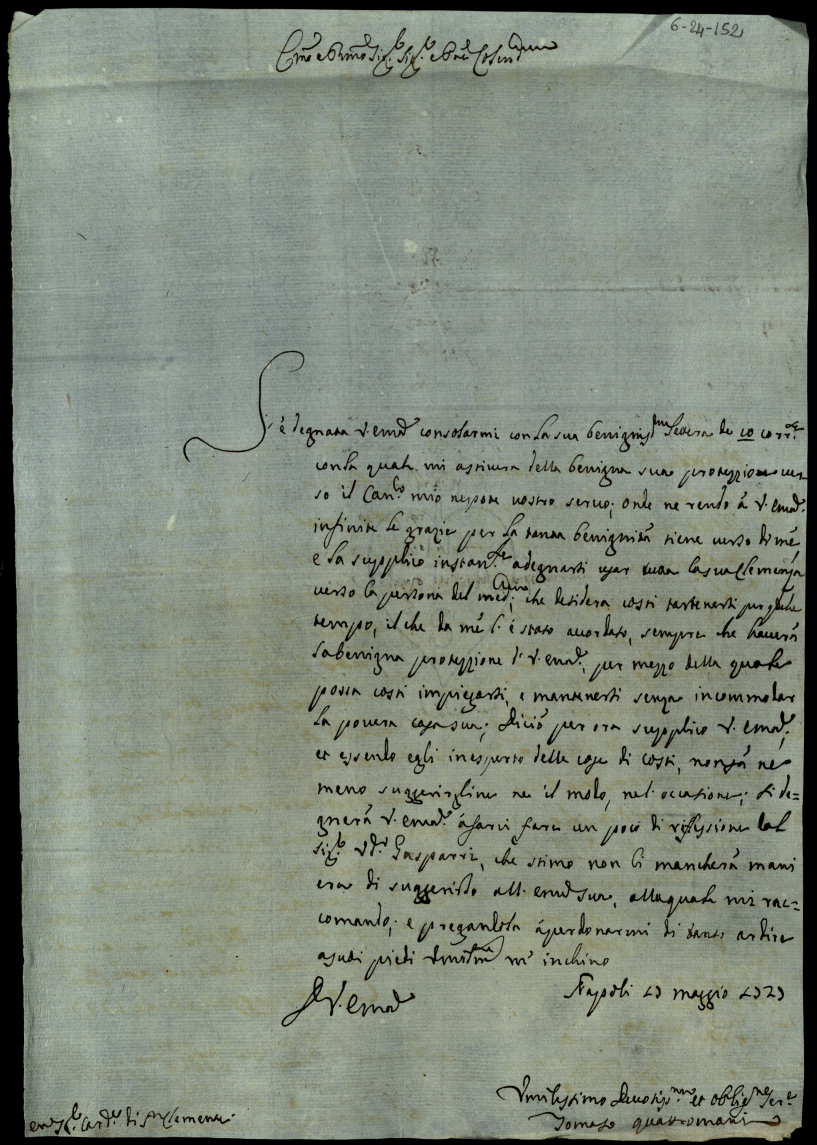 6-24-152
Em̃o e Rm̃o Sig.re Sig.re e Pñe Colen.mo
S'è degnata V. Emã consolarmi con la sua benigniss.ma lettera de 10 corr.te
con la quale mi asicura della benigna sua protezzione ver
so il Can.co mio nepote vostro servo; onde ne rendo à V. Emã
infinite le grazie per la tanta benignità tiene verso di me,
e la supplico instan.te a degnarsi usar tutta la sua Clemenza
verso la persona del med.mo; che desidera costì trattenersi per qualche
tempo, il che da me l'è stato accordato, sempre che haverà
la benigna protezzione di V. Emã, per mezzo della quale
possa costì impiegarsi, e mantenersi senza incommodar
la povera casa sua; di ciò per ora supplico V. Emã;
et essendo egli inesperto delle cose di costì, non sà ne
meno suggerirgline ne il modo, ne l'occasione; si de=
gnerà V. Emã di farci fare un poco di riflessione dal
Sig.re Gasparri, che stimo non li mancherà mani
era di suggerirlo all'Emã sua, alla quale mi rac=
comando; e pregandola à perdonarmi di tanto ardire
a suoi piedi umilm.te m'inchino
Napoli 19 maggio 1729
D. V. Emã
Umilissimo Devotiss.mo et oblig.mo Ser.re
Tomaso Quattromani
Em̃o S.re Card.le di S. Clemente